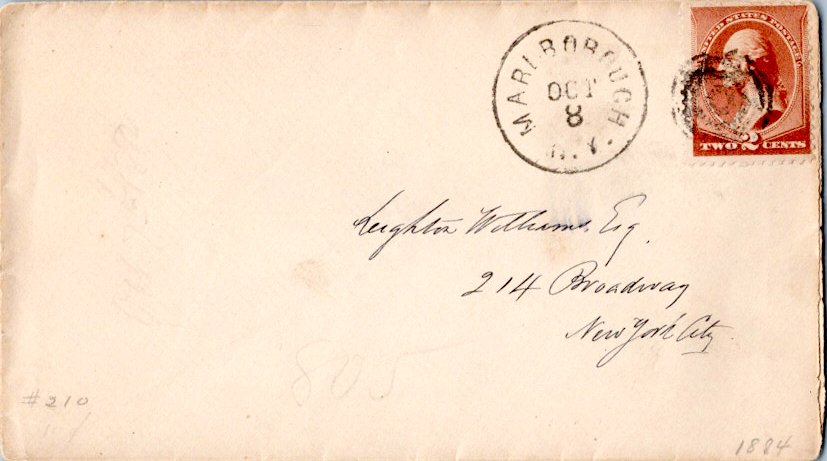 MARLBOROUGH
OCT
8
N.Y.
UNITED STATES POSTAGE
TWO 2 CENTS
Leighton Williams, Esq
214 Broadway
New York City
805
#210
1884